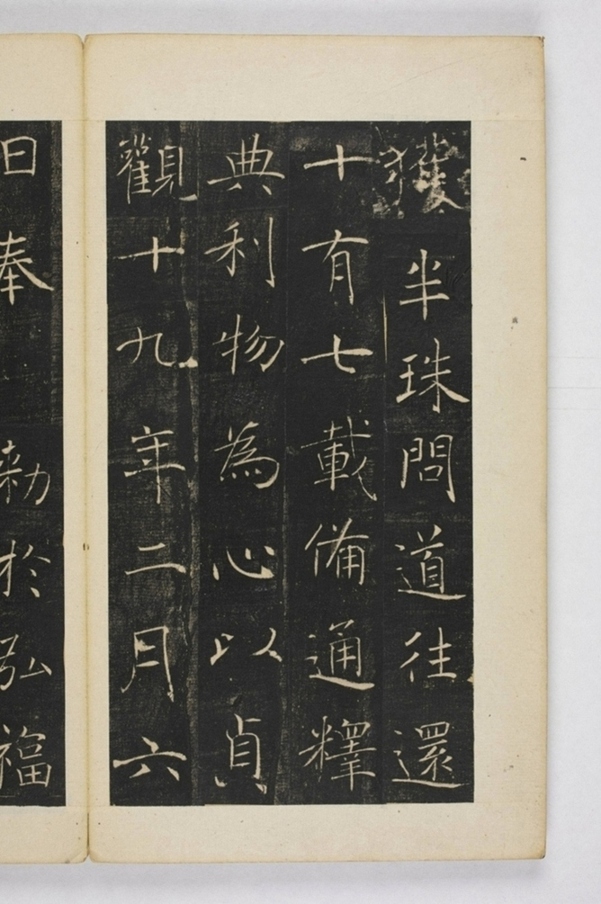 獲半珠問道往還
十有七載備通釋
典利物為心以貞
觀十九年二月六
日奉勑於弘福